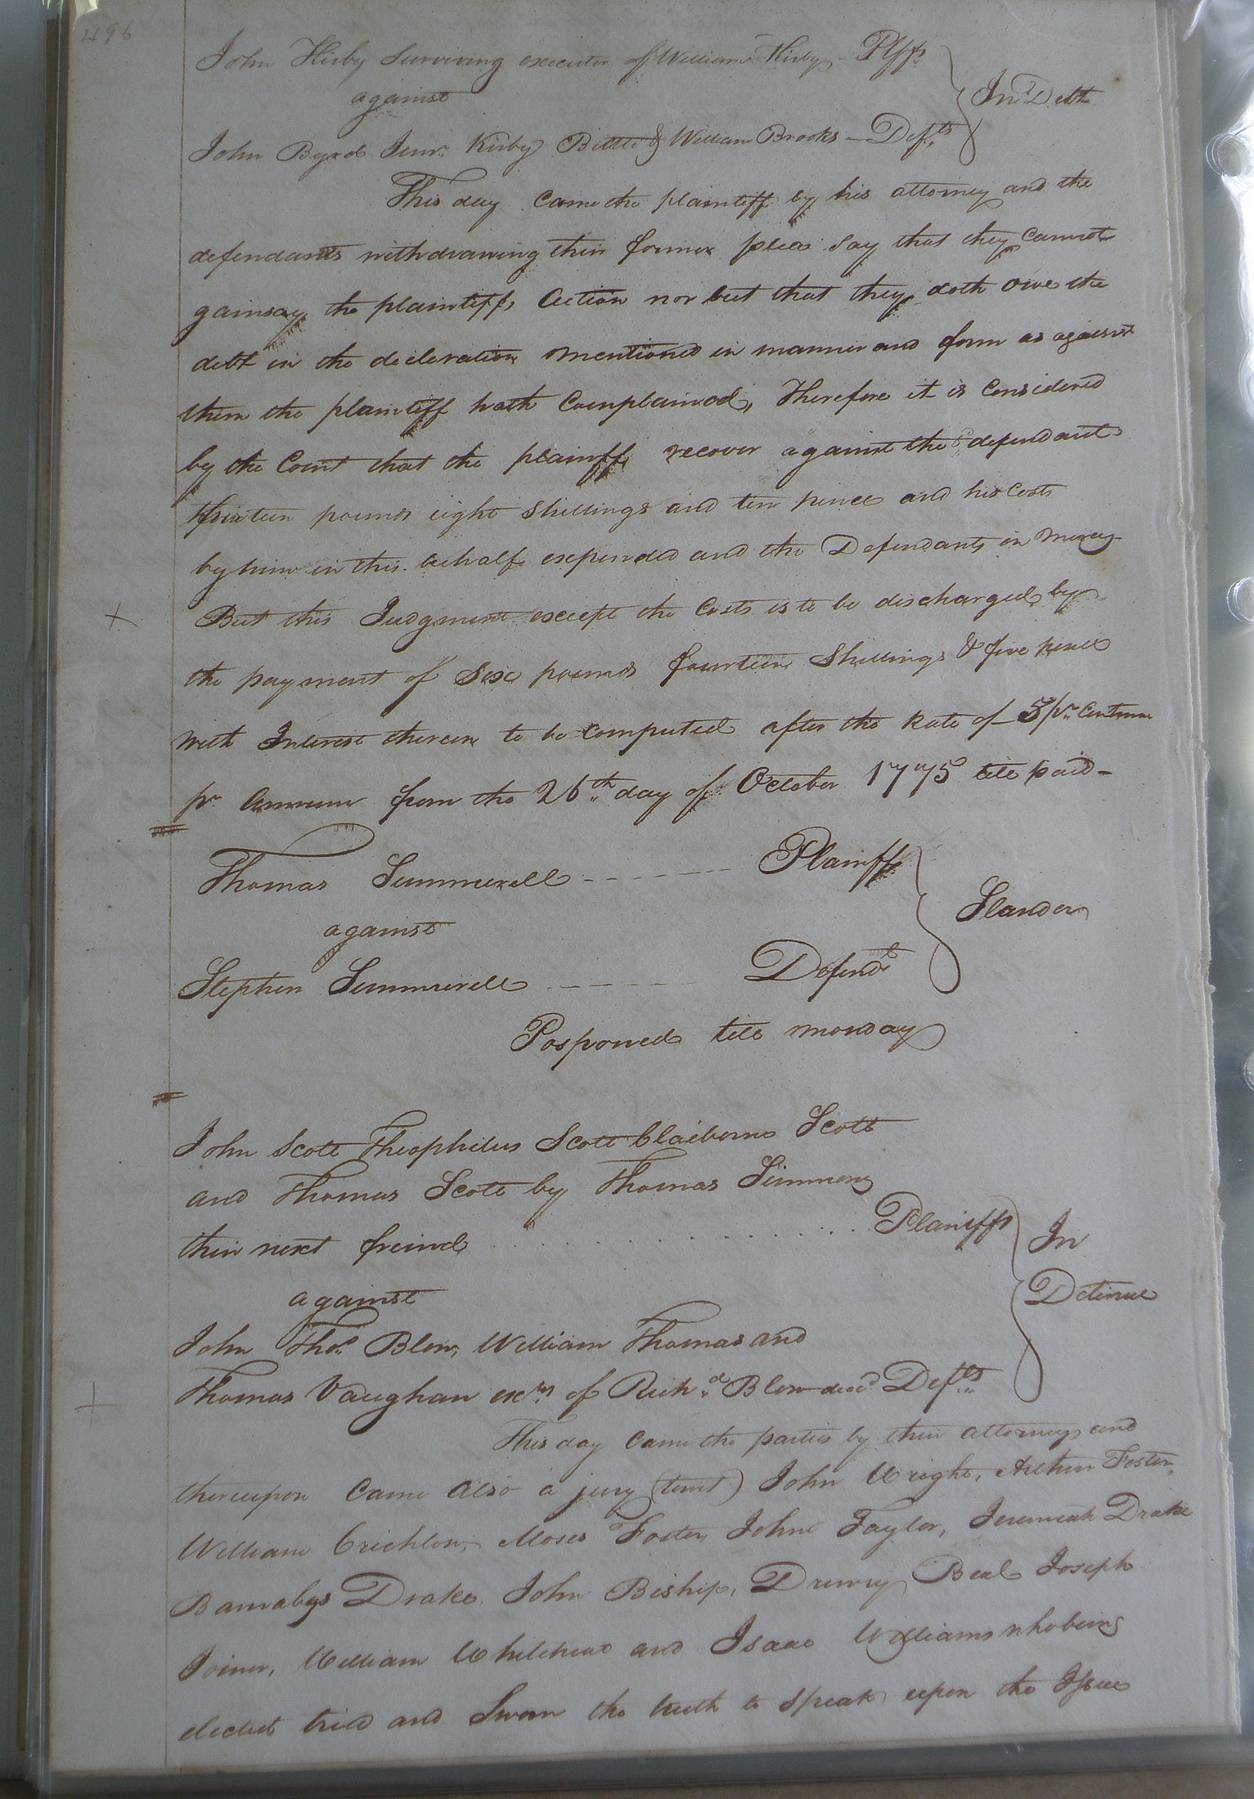 496
John Kirby Surviving executor of William Kirby Plffs
against
In Debt
John Byrd Junr. Kirby Bittle & William Brooks — Defts.
This day came the plaintiff by his attorney and the
defendants withdrawing their former plea say that they cannot
gainsay the plaintiffs Action nor but that they doth owe the
debt in the decleration mentioned in manner and form as against
them the plaintiff hath Complained, Therefore it is Considered
by the Court that the plaintiff recover against the defendants
thirteen pounds eight Shillings and ten pence and his Costs
by him in this behalf expended and the Defendants in mercy
But this Judgment except the Costs is to be discharged by
the payment of Six pounds fourteen Shillings & five pence
with Interest thereon to be Computed after the Rate of 5 pr. Centum
pr Annum from the 26th day of October 1775 till paid —
Thomas Summerell Plaintiff
against
Slander
Stephen Summerell Defendt
Posponed till monday
John Scott Theophilus Scott Claiborne Scott
and Thomas Scott by Thomas Simmons
their next freind Plaintiffs
In
against
Detinue
John Thos. Blow, William Thomas and
Thomas Vaughan exrs. of Richd. Blow decd. Defts.
This day came the parties by their attorneys and
thereupon came also a jury (towit) John Wright, Arthur Foster,
William Crichlow, Moses Foster, John Taylor, Jeremiah Drake
Barnabys Drake, John Biship, Drewry Beal Joseph
Joiner, William Whithead and Isaac Williams who being
elected tried and Sworn the truth to Speak upon the Issue